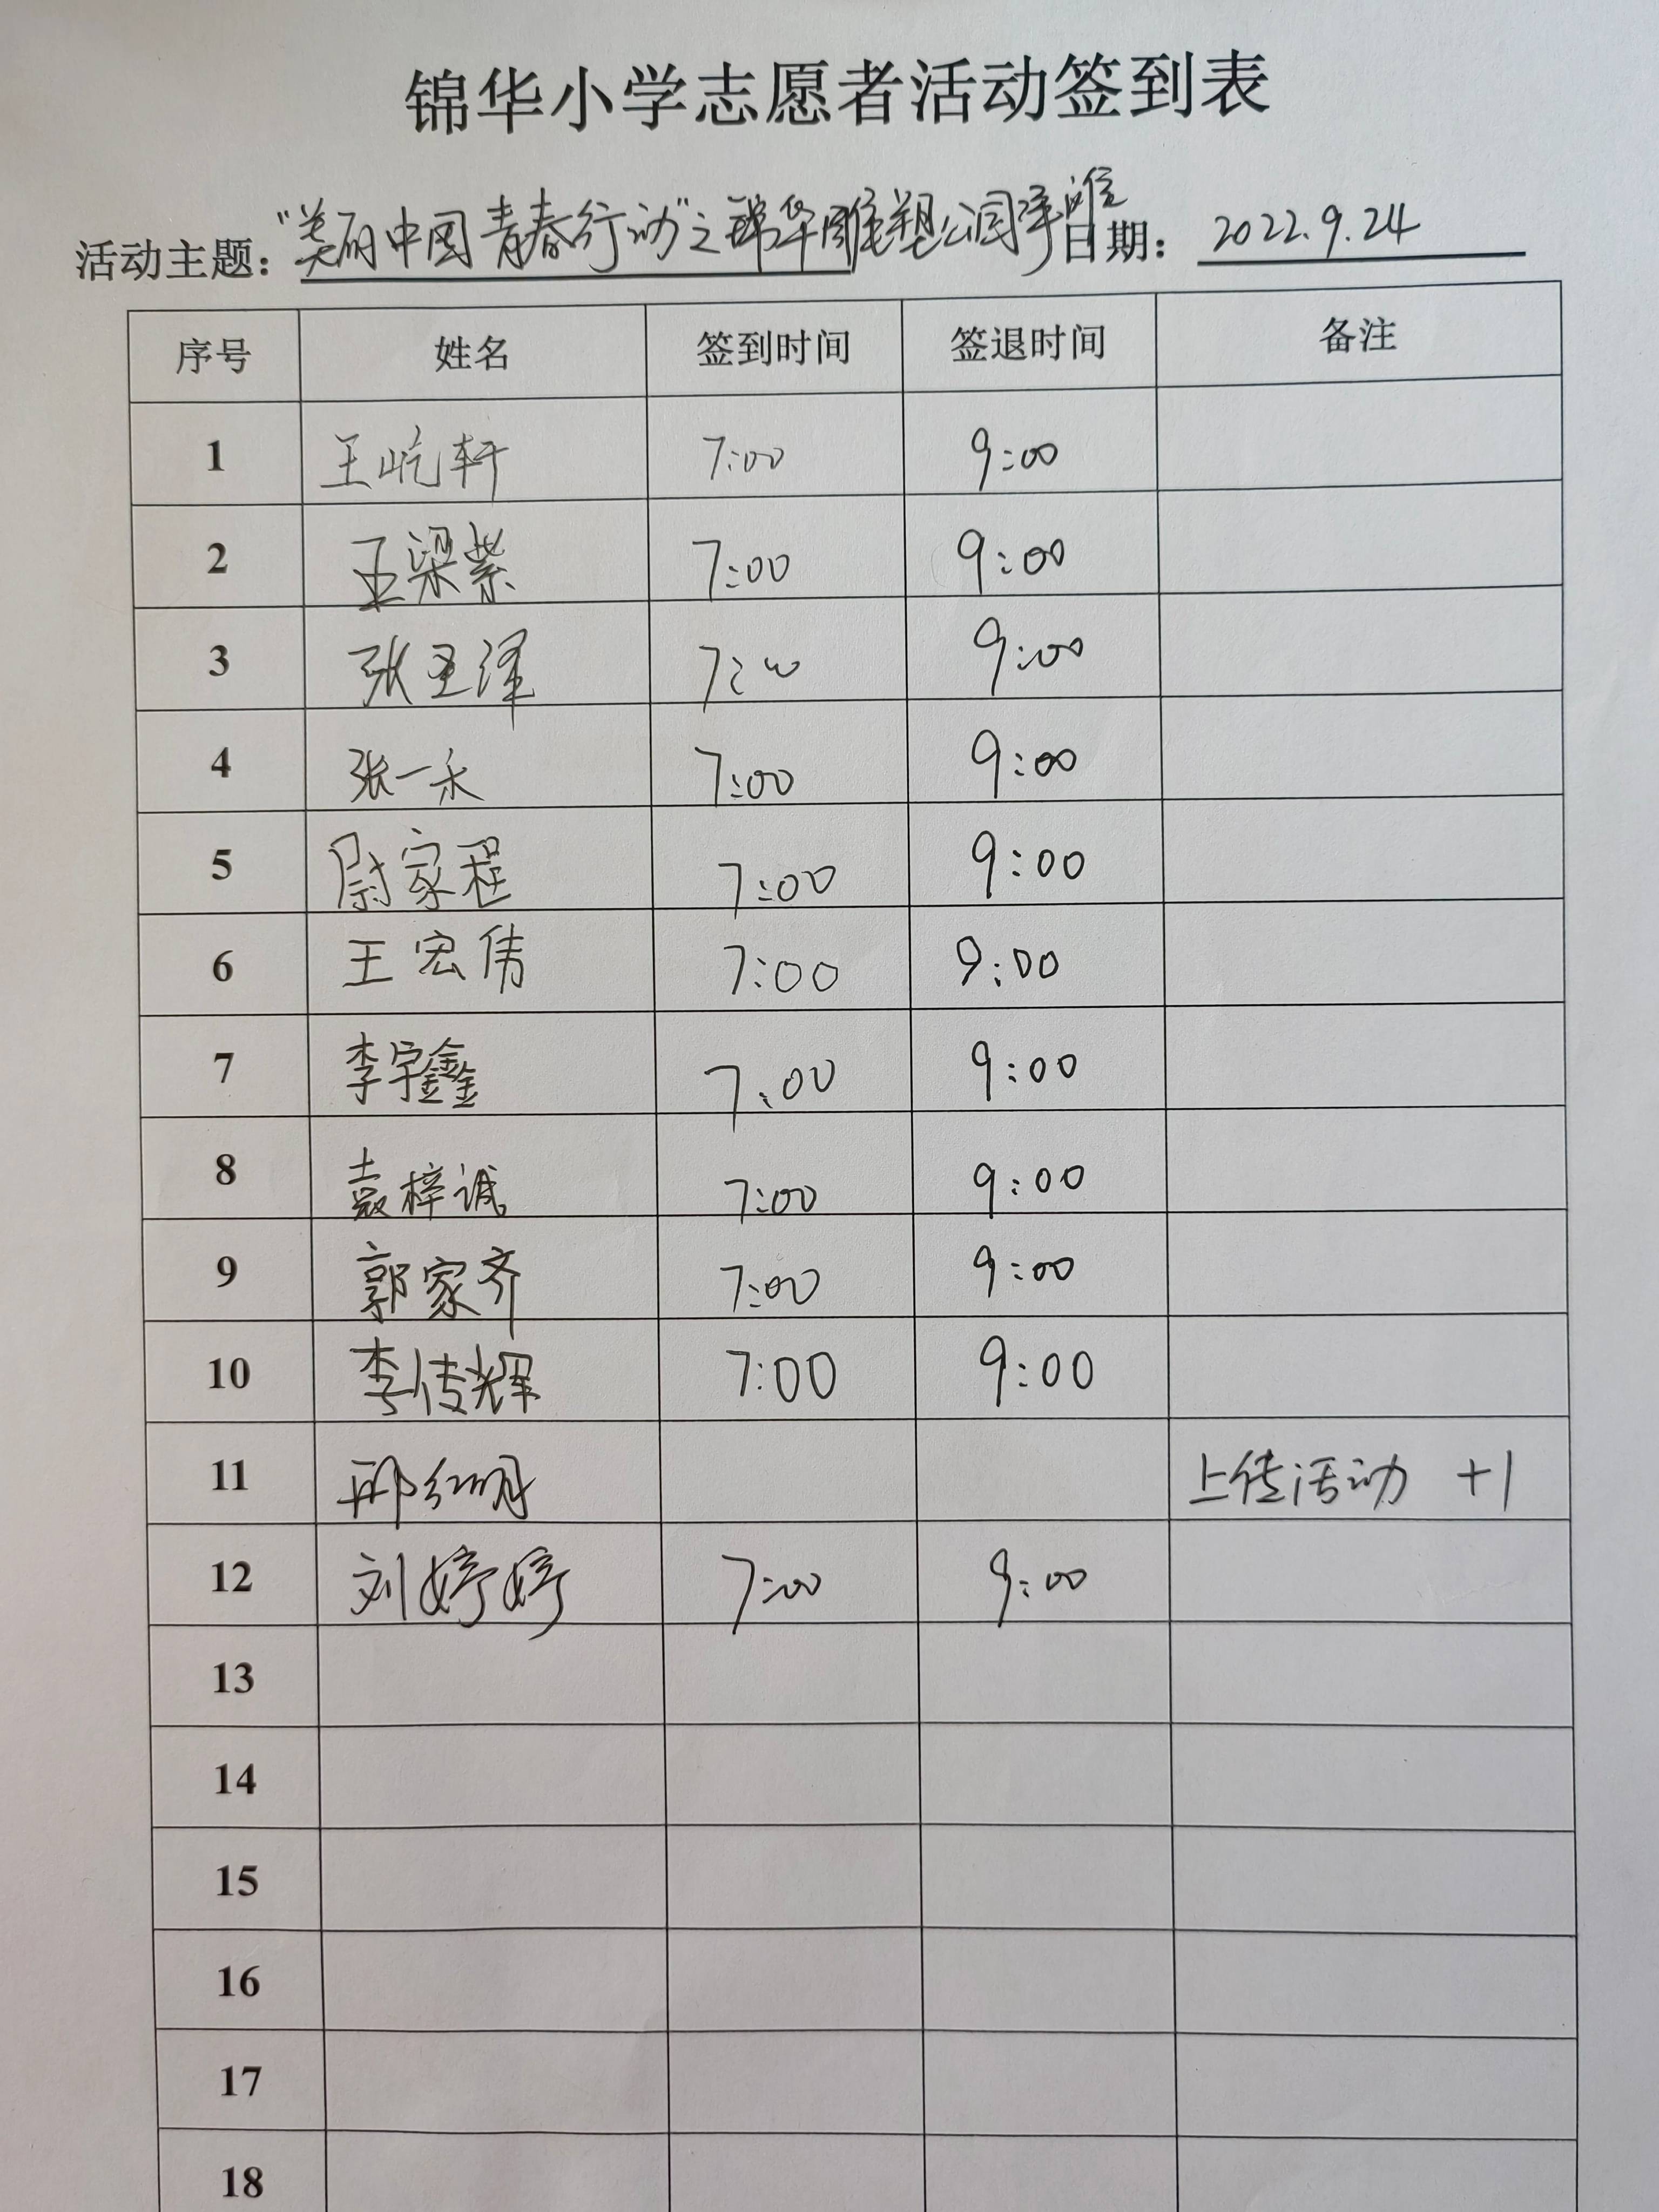 锦华小学志愿者活动签到表
活动主题：“美丽中国青春行动”之锦华雕塑公园净滩 日期：2022.9.24
序号 姓名 签到时间 签退时间 备注
1 王屹轩 7:00 9:00
2 王梁紫 7:00 9:00
3 张圣泽 7:00 9:00
4 张一永 7:00 9:00
5 尉家程 7:00 9:00
6 王宏伟 7:00 9:00
7 李宇鑫 7:00 9:00
8 袁梓诚 7:00 9:00
9 郭家齐 7:00 9:00
10 李传辉 7:00 9:00
11 邢 上传活动 +1
12 刘婷婷 7:00 9:00
13
14
15
16
17
18